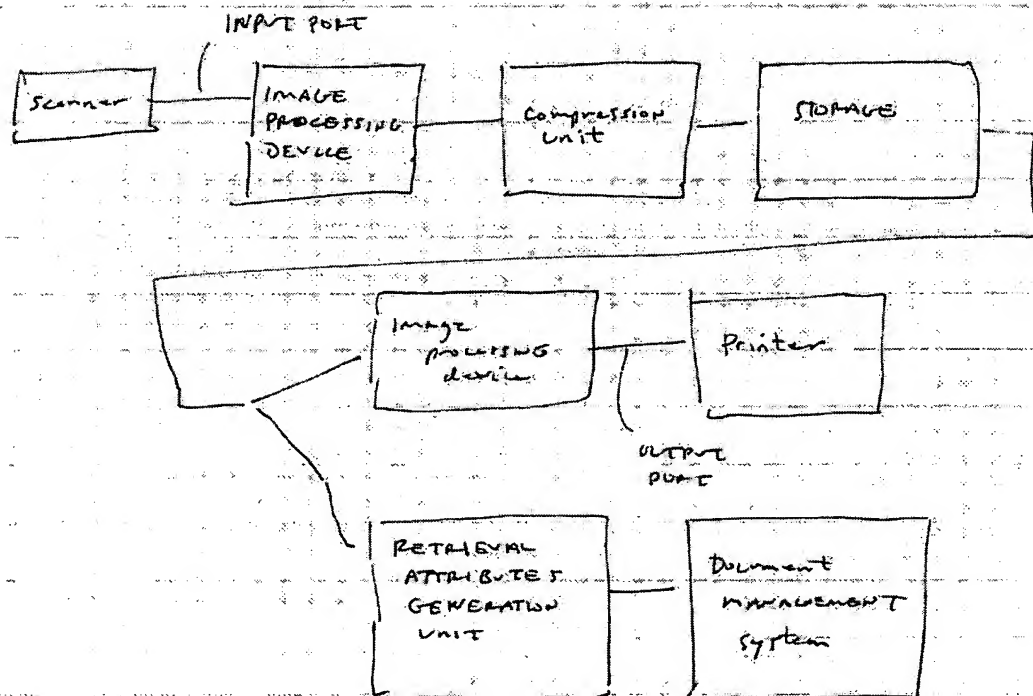 INPUT PORT
Scanner
IMAGE
PROCESSING
DEVICE
Compression
Unit
STORAGE
Image
processing
device
Printer
OUTPUT
PORT
RETRIEVAL
ATTRIBUTES
GENERATION
UNIT
Document
MANAGEMENT
system